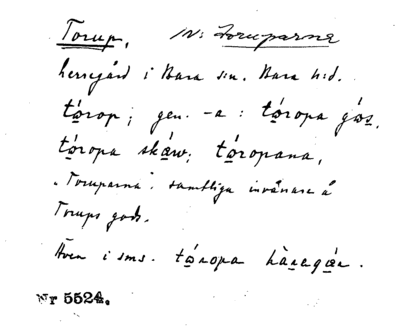 Torup. IN: Toruparna
herregård i Bara sn. Bara h:d.
tó̠rop; gen. -a: tó̠ropa gó̠s,
tó̠ropa ská̠w; tó̠ropana,
"Toruparna": samtliga invånare å
Torups gods.
Även i sms. tó̠ropa hà̠nagó̠n.
Nr 5524.